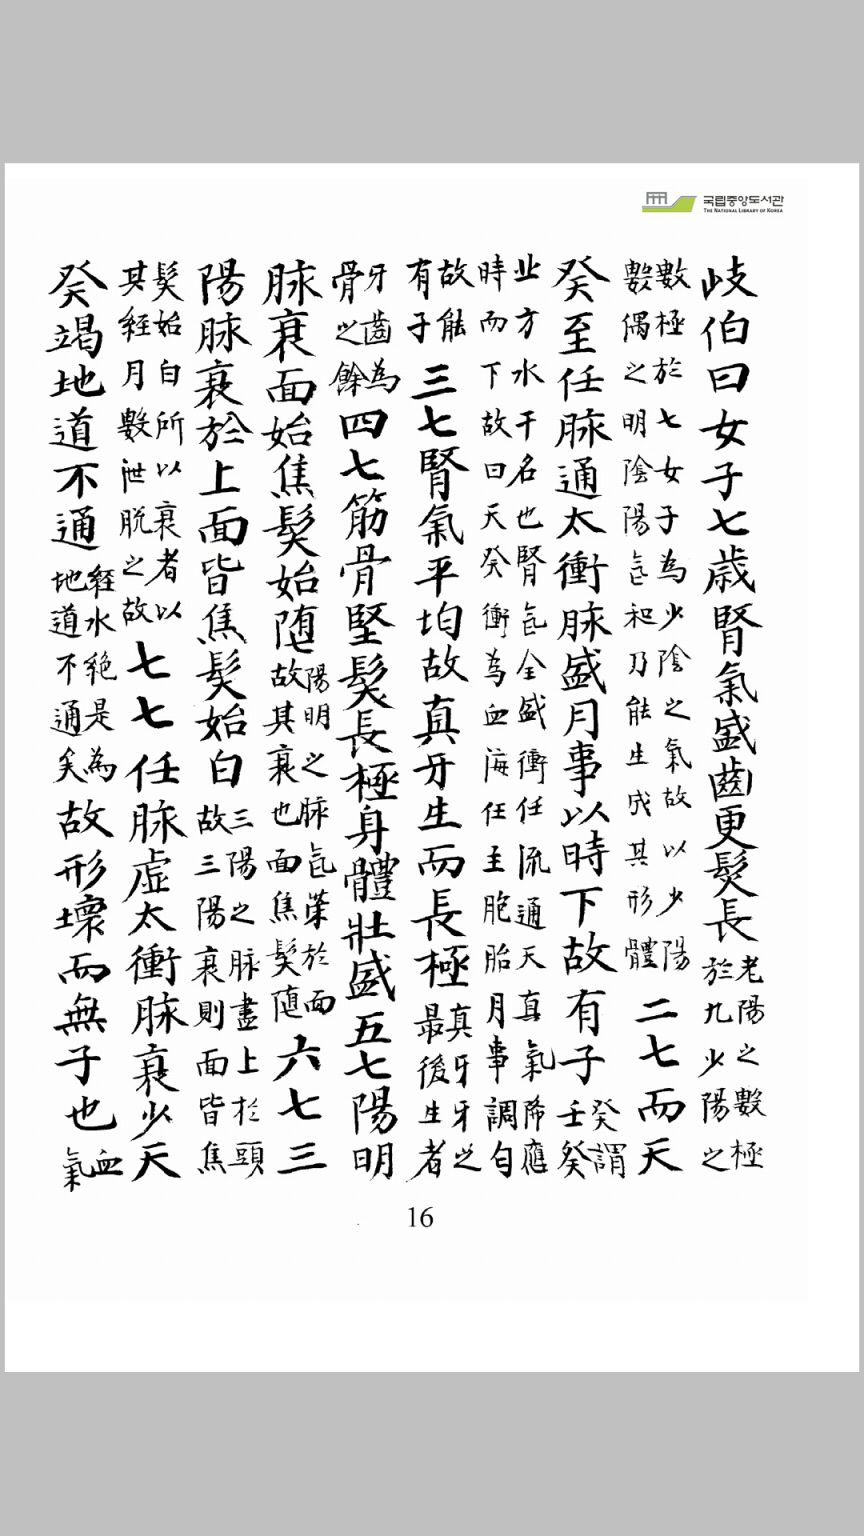 국립중앙도서관
THE NATIONAL LIBRARY OF KOREA
岐伯曰女子七歳腎氣盛齒更髮長老陽之數極於九少陽之
數極於七女子為少陰之氣故以少陽數偶之明陰陽氣和乃能生成其形體二七而天
癸至任脉通太衝脉盛月事以時下故有子癸謂壬癸
北方水干名也腎氣全盛衝任流通天真氣降應時而下故曰天癸衝為血海任主胞胎月事調匀
故能有子三七腎氣平均故真牙生而長極真牙牙之最後生者
牙齒為骨之餘四七筋骨堅髮長極身體壯盛五七陽明
脉衰面始焦髮始堕陽明之脉氣榮於面故其衰也面焦髮隨六七三
陽脉衰於上面皆焦髮始白三陽之脉盡上於頭故三陽衰則面皆焦
髮始白所以衰者以其經月數泄脱之故七七任脉虛太衝脉衰少天
癸竭地道不通經水絶是為地道不通矣故形壞而無子也血氣
16